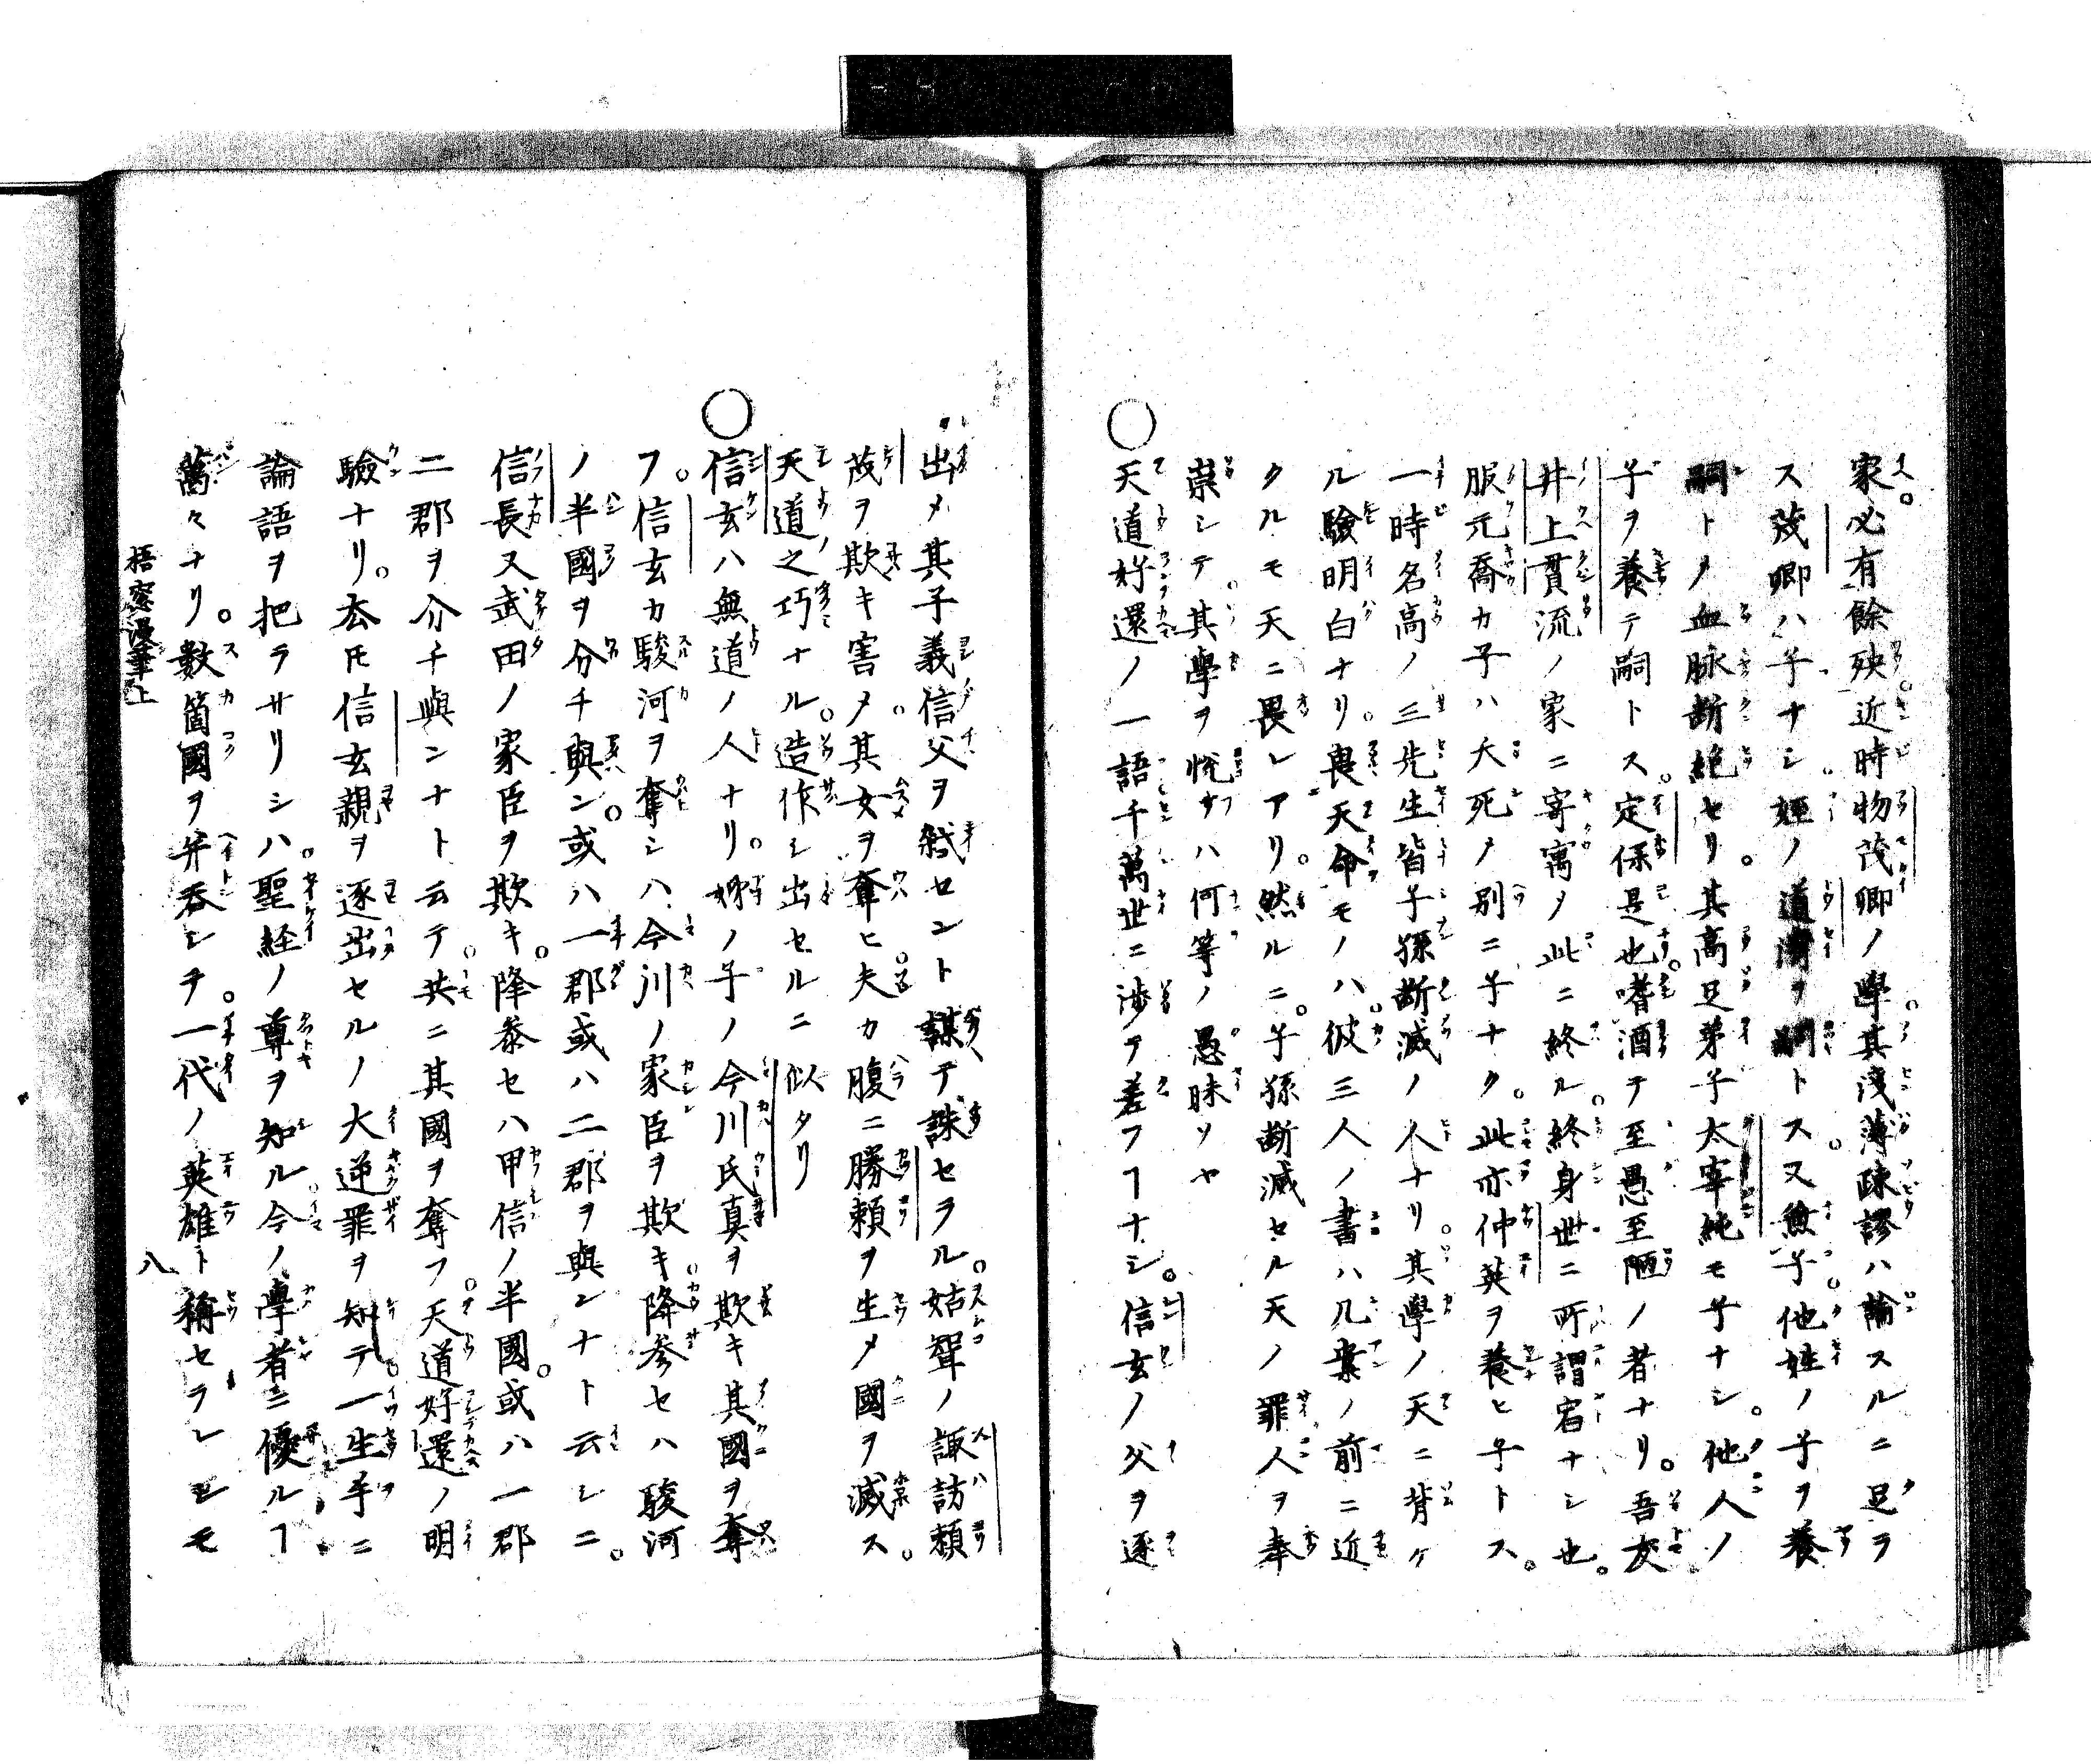 家必有餘殃近時物茂卿ノ學其淺薄疎謬ハ論スルニ足ラ
ス茂卿ハ子ナシ姪ノ道濟ヲ嗣トス又無子他姓ノ子ヲ養
嗣トメ血脉断絶セリ其高足弟子太宰純モ子ナシ他人ノ
子ヲ養テ嗣トス定保是也嗜酒テ至愚至陋ノ者ナリ吾友
井上貫流ノ家ニ寄寓メ此ニ終ル終身世ニ所謂宿ナシ也
服元喬カ子ハ夭死メ別ニ子ナク此亦仲英ヲ養ヒ子トス
一時名高ノ三先生皆子孫断滅ノ人ナリ其學ノ天ニ背ケ
ル驗明白ナリ畏天命モノハ彼三人ノ書ハ几案ノ前ニ近
クルモ天ニ畏レアリ然ルニ子孫断滅セル天ノ罪人ヲ奉
崇シテ其學ヲ悦フハ何等ノ愚昧ソヤ
○天道好還ノ一語千萬世ニ渉テ差フヿナシ信玄ノ父ヲ逐
出メ其子義信父ヲ弑セント謀テ誅セラル姑聟ノ諏訪頼
茂ヲ欺キ害メ其女ヲ奪ヒ夫カ腹ニ勝頼ヲ生メ國ヲ滅ス
天道之巧ナル造作シ出セルニ似タリ
○信玄ハ無道ノ人ナリ姉ノ子ノ今川氏真ヲ欺キ其國ヲ奪
フ信玄カ駿河ヲ奪シハ今川ノ家臣ヲ欺キ降参セハ駿河
ノ半國ヲ分チ與ン或ハ一郡或ハ二郡ヲ與ンナト云シニ
信長又武田ノ家臣ヲ欺キ降叅セハ甲信ノ半國或ハ一郡
二郡ヲ介チ與ンナト云テ共ニ其國ヲ奪フ天道好還ノ明
驗ナリ厺𪜈信玄親ヲ逐出セルノ大逆罪ヲ知テ一生手ニ
論語ヲ把ラサリシハ聖経ノ尊ヲ知ル今ノ學者ニ優ルヿ
萬々ナリ數箇國ヲ并吞シテ一代ノ英雄ト稱セラレシモ
梧窓漫筆上
八